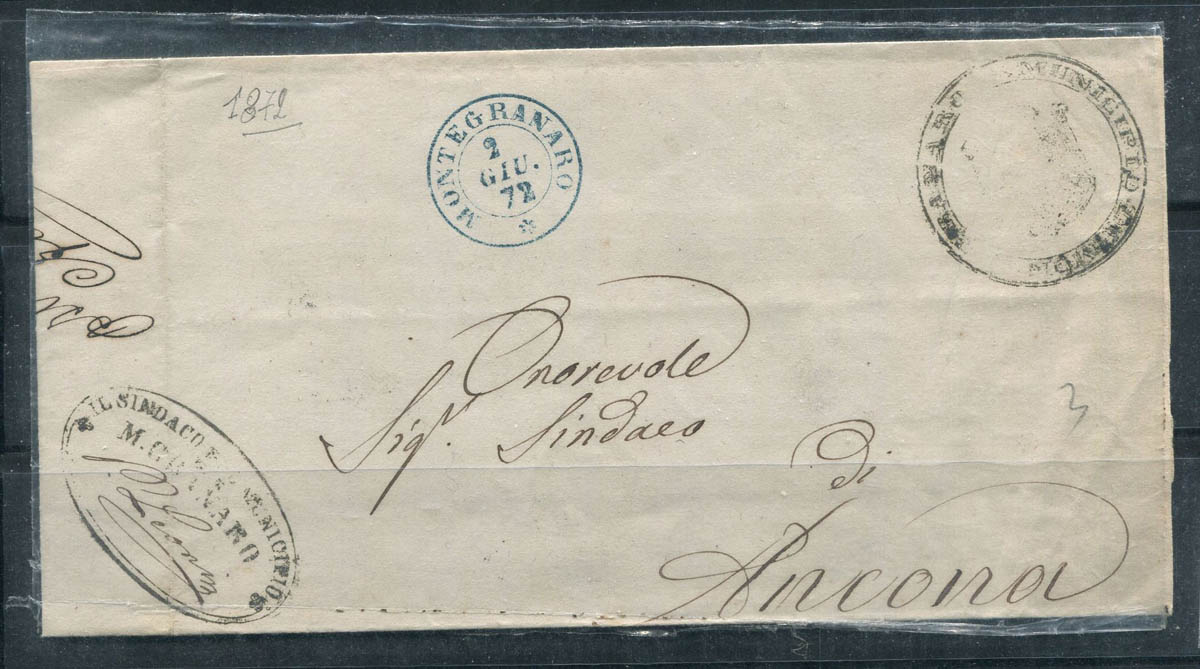 1872
MONTEGRANARO
2
GIU.
72
MUNICIPIO
Onorevole
Sigr. Sindaco
di
Ancona
3
IL SINDACO MUNICIPIO